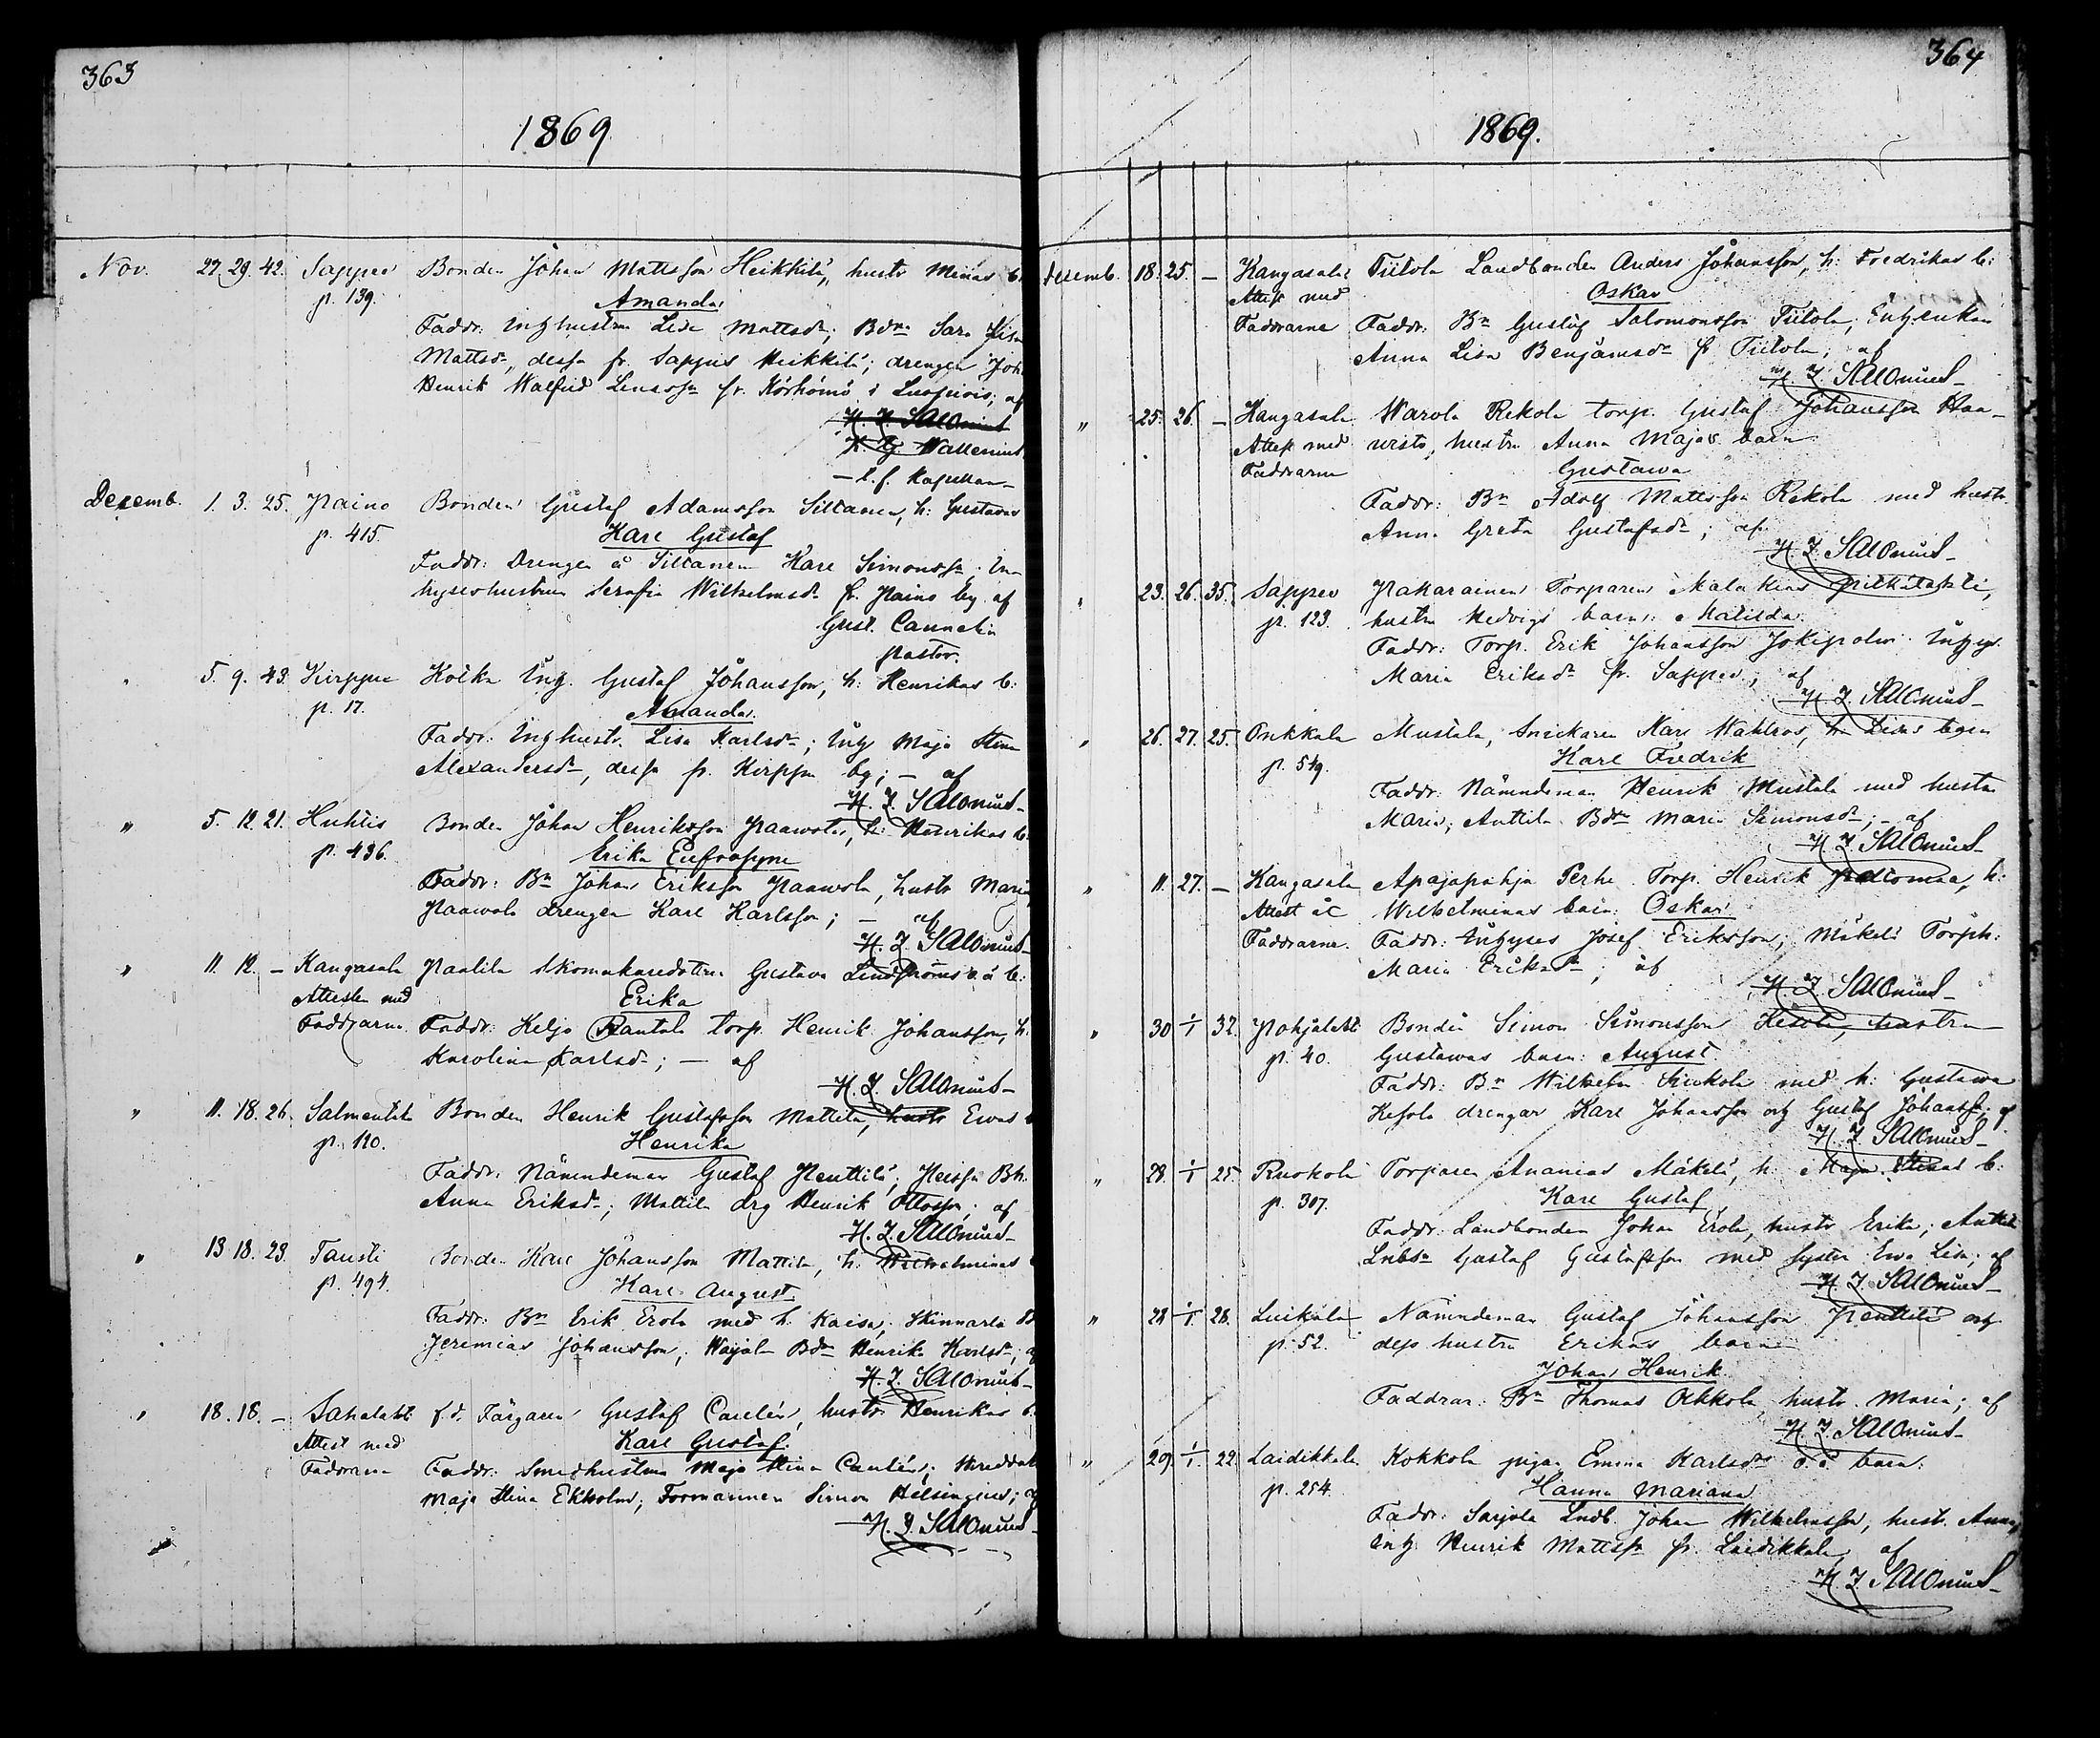 363
1869
Nov. 27. 29. 42. Sappee Bonden Johan Mattsson Heikkilä, hustr Minas b.
p. 139. Amanda
Faddr: Inghustrun Lisa Mattsdr; Bdrn Sara Lisa
Mattsdr, dessa fr. Sappee Heikkilä; drengen Joh
Henrik Walfrid fr. i Luopiois; af
H. J. Salonius
K. G. Wallenius
l. f. Kapellan
Decemb. 1. 3. 25. Paino Bonden Gustaf Adamsson Siltanen, h: Gustavas
p. 415. Karl Gustaf
Faddr: Drengen å Siltanen Karl Simonssn In-
hyseshustrun Serafia Wilhelmsdr fr. Paino by af
Gust. Cannelin
pastor.
" 5. 9. 43. Kirppu Kölka Ing. Gustaf Johansson, h: Henrikas b:
p. 17. Amanda
Faddr: Inghustr. Lisa Karlsdr; Inh Maja Stina
Alexandersdr, dessa fr. Kirppu by; — af
H. J. Salonius
" 5. 12. 21. Huhtis Bonden Johan Henriksson Paawola, h: Henrikas b.
p. 436. Erika Eufrosyne
Faddr: Bn Johan Eriksson Paawola, hustr Maria
Paawola drengen Karl Karlsson; — af
H. J. Salonius
" 11. 12. — Kangasala Paalila Skomakaredottern Gustava Lindströms o. ä b:
Attesten med Erika
Faddrarne Faddr: Keljo Rantala torp. Henrik Johansson, h.
Karolina Karlsdr; — af
H. J. Salonius
" 11. 18. 26. Salmentaka Bonden Henrik Gustafsson Mattila, hustr Ewas b
p. 110. Henrika
Faddr: Nämndeman Gustaf Penttilä, Bh.
Anna Eriksdr; Mattila drg Henrik Ottosson; af
H. J. Salonius
" 13. 18. 23. Tausti Bonden Karl Johansson Mattila, h: Wilhelminas
p. 494. Karl August
Faddr: Bn Erik Erola med h. Kaisa; Skinnarla
Jeremias Johansson; Bdr Henrika Karlsdr; af
H. J. Salonius
" 18. 18. — Sahalahti f.d. Färgaren Gustaf Carlén, hustr Henrikas b.
Attest med Karl Gustaf
Faddrarne Faddr: Smedhustrun Maja Stina Carlén;
Maja Stina Ekholm; Formannen Simon Helsingius; af
H. J. Salonius
364
1869.
Decemb. 18. 25. — Kangasala Tiitola Landbonden Anders Johansson, h: Fredrikas b:
Attest med Oskar
Faddrarne Faddr: Bn Gustaf Salomonsson Tiitola; Enkan
Anna Lisa Benjamsdr fr Tiitola; af
H. J. Salonius
" 25. 26. — Kangasala Warola Rekola torp. Gustaf Johansson Haa-
Attest med visto, hustru Anna Majas barn
Faddrarne Gustawa
Faddr: Bn Adolf Mattsson Rekola med hustr
Anna Greta Gustafsdr; af
H. J. Salonius
" 23. 26. 35. Sappee Pakarainen Torparen Malakias Pitkälahti,
p. 123. hustru Hedvigs barn: Matilda
Faddr: Torp. Erik Johansson Jokipolwi Inhys.
Maria Eriksdr fr. Sappee; af
H. J. Salonius
" 26. 27. 25. Onkkala Mustala, Snickaren Karl Wahlros, h: Lisas barn
p. 549. Karl Fredrik
Faddr: Nämndeman Henrik Mustala med hustru
Maria; Anttila Bdr Maria Simonsdr; — af
H. J. Salonius
" 11. 27. — Kangasala Apajapohja Perhe Torp. Henrik h:
Attest af Wilhelminas barn: Oskar
Faddrarne. Faddr: Inhyses Josef Eriksson; Mäkelä Torph:
Maria Eriksdr; af
H. J. Salonius
" 30 1/1 32. Pohjalahti Bonden Simon Simonsson Kesola, hustru
p. 40. Gustawas barn: August
Faddr: Bn Wilhelm Sinkola med h: Gustawa
Kesola drengar Karl Johansson och Gustaf Johanss; af
H. J. Salonius
" 28. 1/1 25. Ruokola Torparen Ananias Mäkelä, h: Maja Stinas b:
p. 307. Karl Gustaf
Faddr: Landbonden Johan Erola, hustr Erika; Anttila
Lnbsn Gustaf Gustafsson med syster Ewa Lisa; af
H. J. Salonius
" 28 1/1. 28. Luikala Nämndeman Gustaf Johansson Penttilä och
p. 52. dess hustru Erikas barn
Johan Henrik
Faddrar: Bn Thomas Ockkola hustr. Maria; af
H. J. Salonius
" 29 1/1. 22. Laidikkala Kokkola pigan Emma Karlsdr o. ä. barn:
p. 254. Hanna Mariana
Faddr: Sarjola Lndb. Johan Wilhelmsson, hustr. Anna,
Inh Henrik Mattssn fr. Laidikkala, af
H. J. Salonius